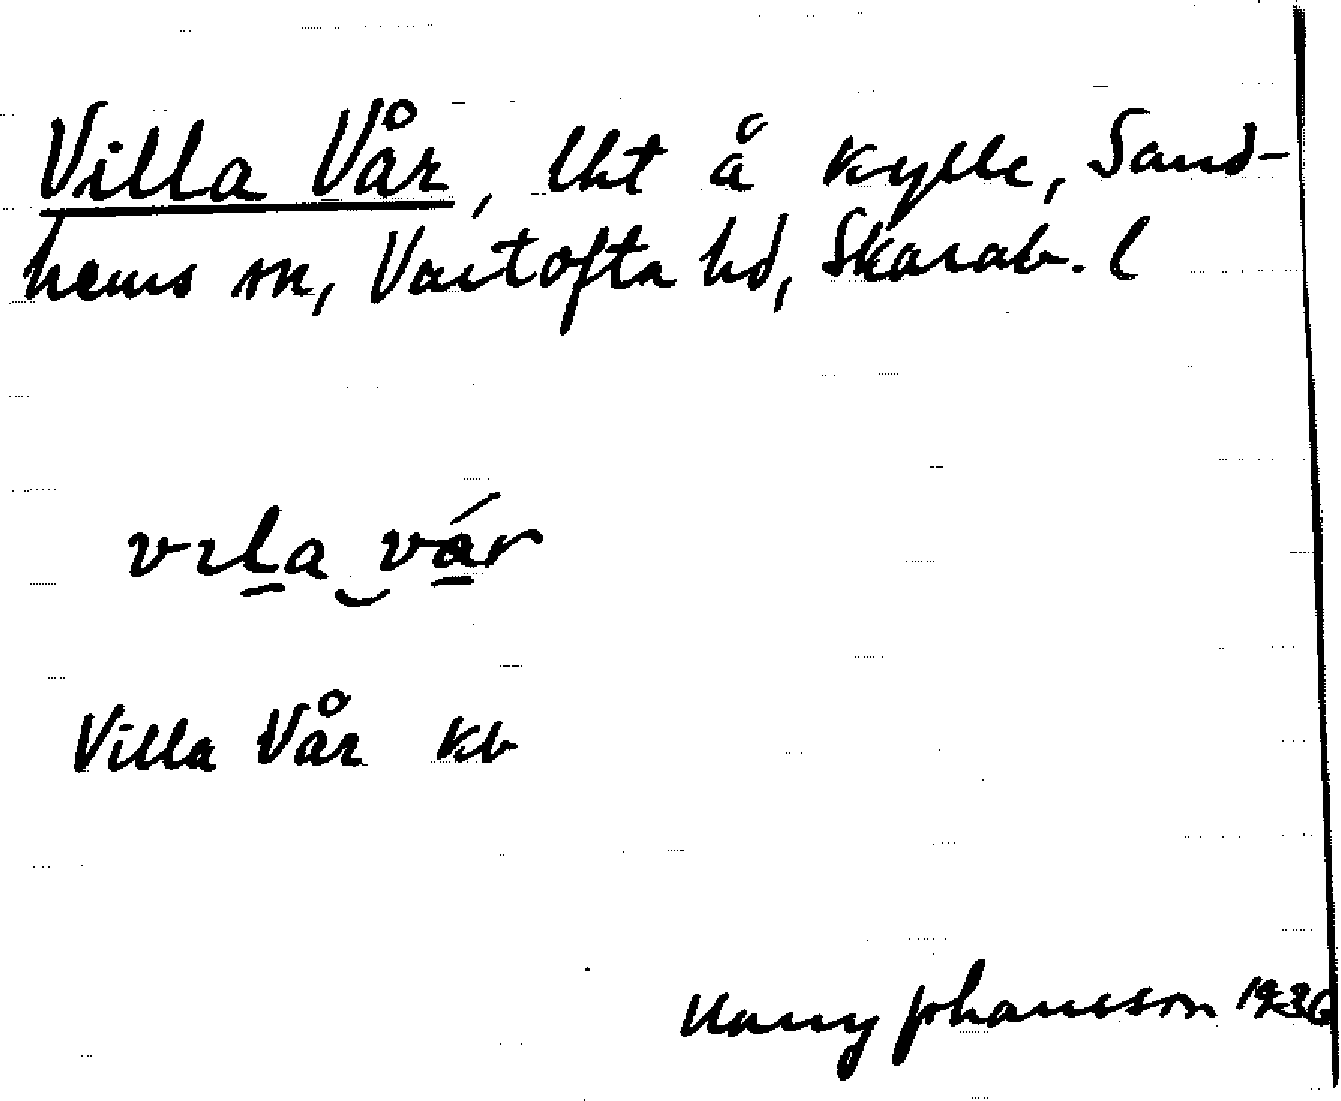 Villa Vår, lht å Kylle, Sand-
hems sn, Vartofta hd, Skarab. l
vɪla vár
Villa Vår kb
Harry Johansson 1936